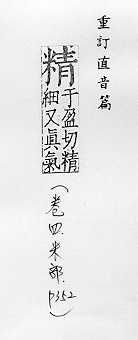 重訂直音篇
精
子盈切精
細又真氣
(卷四.米部.
P352)